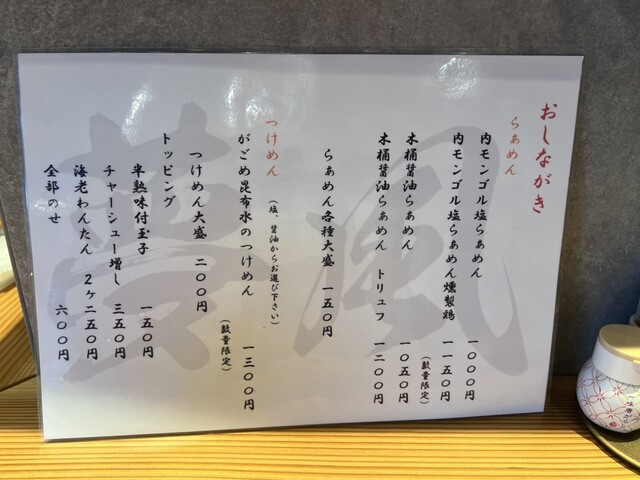 おしながき
らぁめん
内モンゴル塩らぁめん 一〇〇〇円
内モンゴル塩らぁめん燻製鶏 一一五〇円
（数量限定）
木桶醤油らぁめん 一〇五〇円
木桶醤油らぁめん トリュフ 一二〇〇円
らぁめん各種大盛 一五〇円
つけめん
（塩、醤油からお選び下さい）
がごめ昆布水のつけめん 一三〇〇円
（数量限定）
つけめん大盛 二〇〇円
トッピング
半熟味付玉子 一五〇円
チャーシュー増し 三五〇円
海老わんたん 2ヶ二五〇円
全部のせ 六〇〇円
風
夢